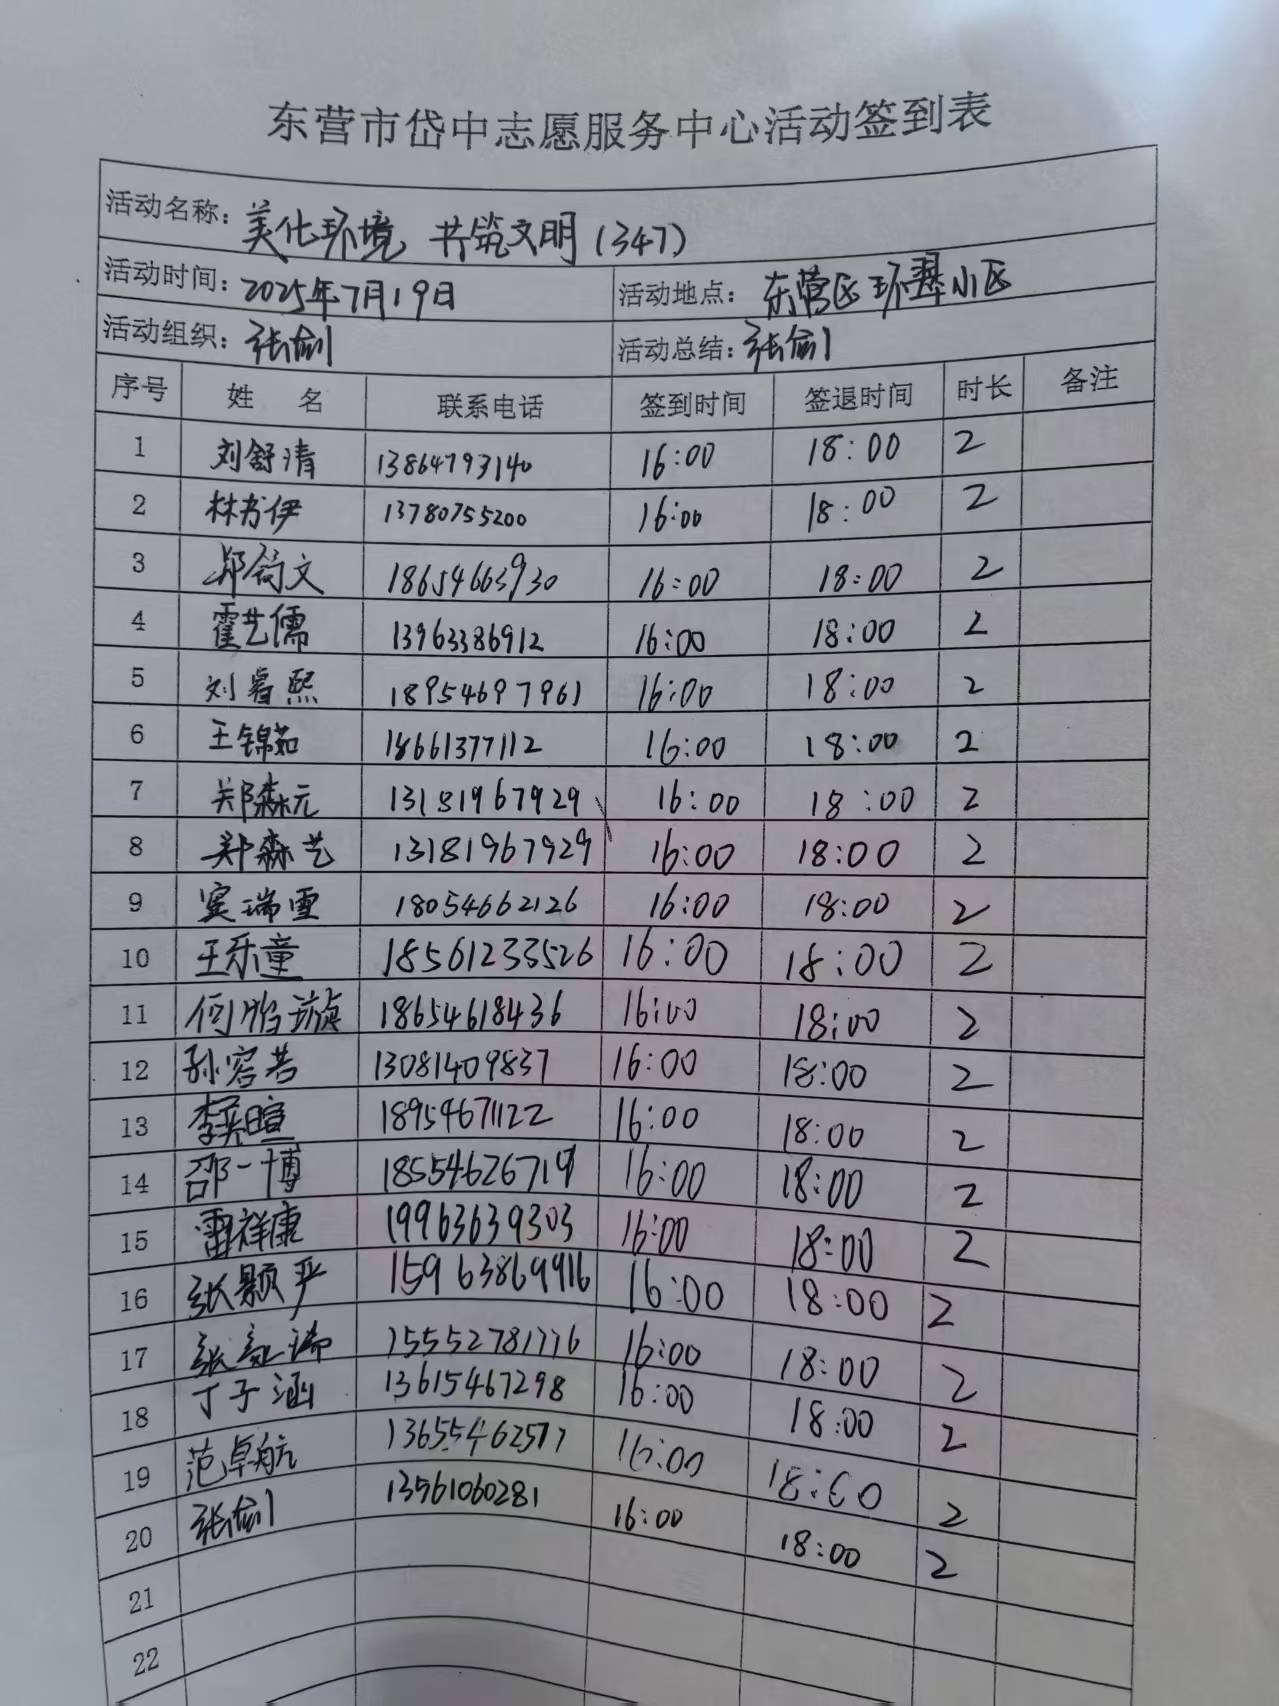 东营市岱中志愿服务中心活动签到表
活动名称: 美化环境 共筑文明(347)
活动时间: 2025年7月19日 活动地点: 东营区环翠小区
活动组织: 张剑 活动总结: 张剑
序号 姓 名 联系电话 签到时间 签退时间 时长 备注
1 刘舒清 13864793140 16:00 18:00 2
2 林书伊 13780755200 16:00 18:00 2
3 文 18654663930 16:00 18:00 2
4 霍艺儒 13963386912 16:00 18:00 2
5 刘睿熙 18954697961 16:00 18:00 2
6 王锦茹 18661377112 16:00 18:00 2
7 郑森元 13181967929 16:00 18:00 2
8 森艺 13181967929 16:00 18:00 2
9 窦瑞雪 18054662126 16:00 18:00 2
10 王乐童 18561233526 16:00 18:00 2
11 何 璇 18654618436 16:00 18:00 2
12 孙容若 13081409837 16:00 18:00 2
13 李奕暄 18954671122 16:00 18:00 2
14 邵一博 18554626719 16:00 18:00 2
15 雷祥康 19963639303 16:00 18:00 2
16 张颢严 15963869916 16:00 18:00 2
17 张 瑞 15552781776 16:00 18:00 2
18 丁子涵 13615467298 16:00 18:00 2
19 范卓航 13655462577 16:00 18:00 2
20 张剑 13561060281 16:00 18:00 2
21
22